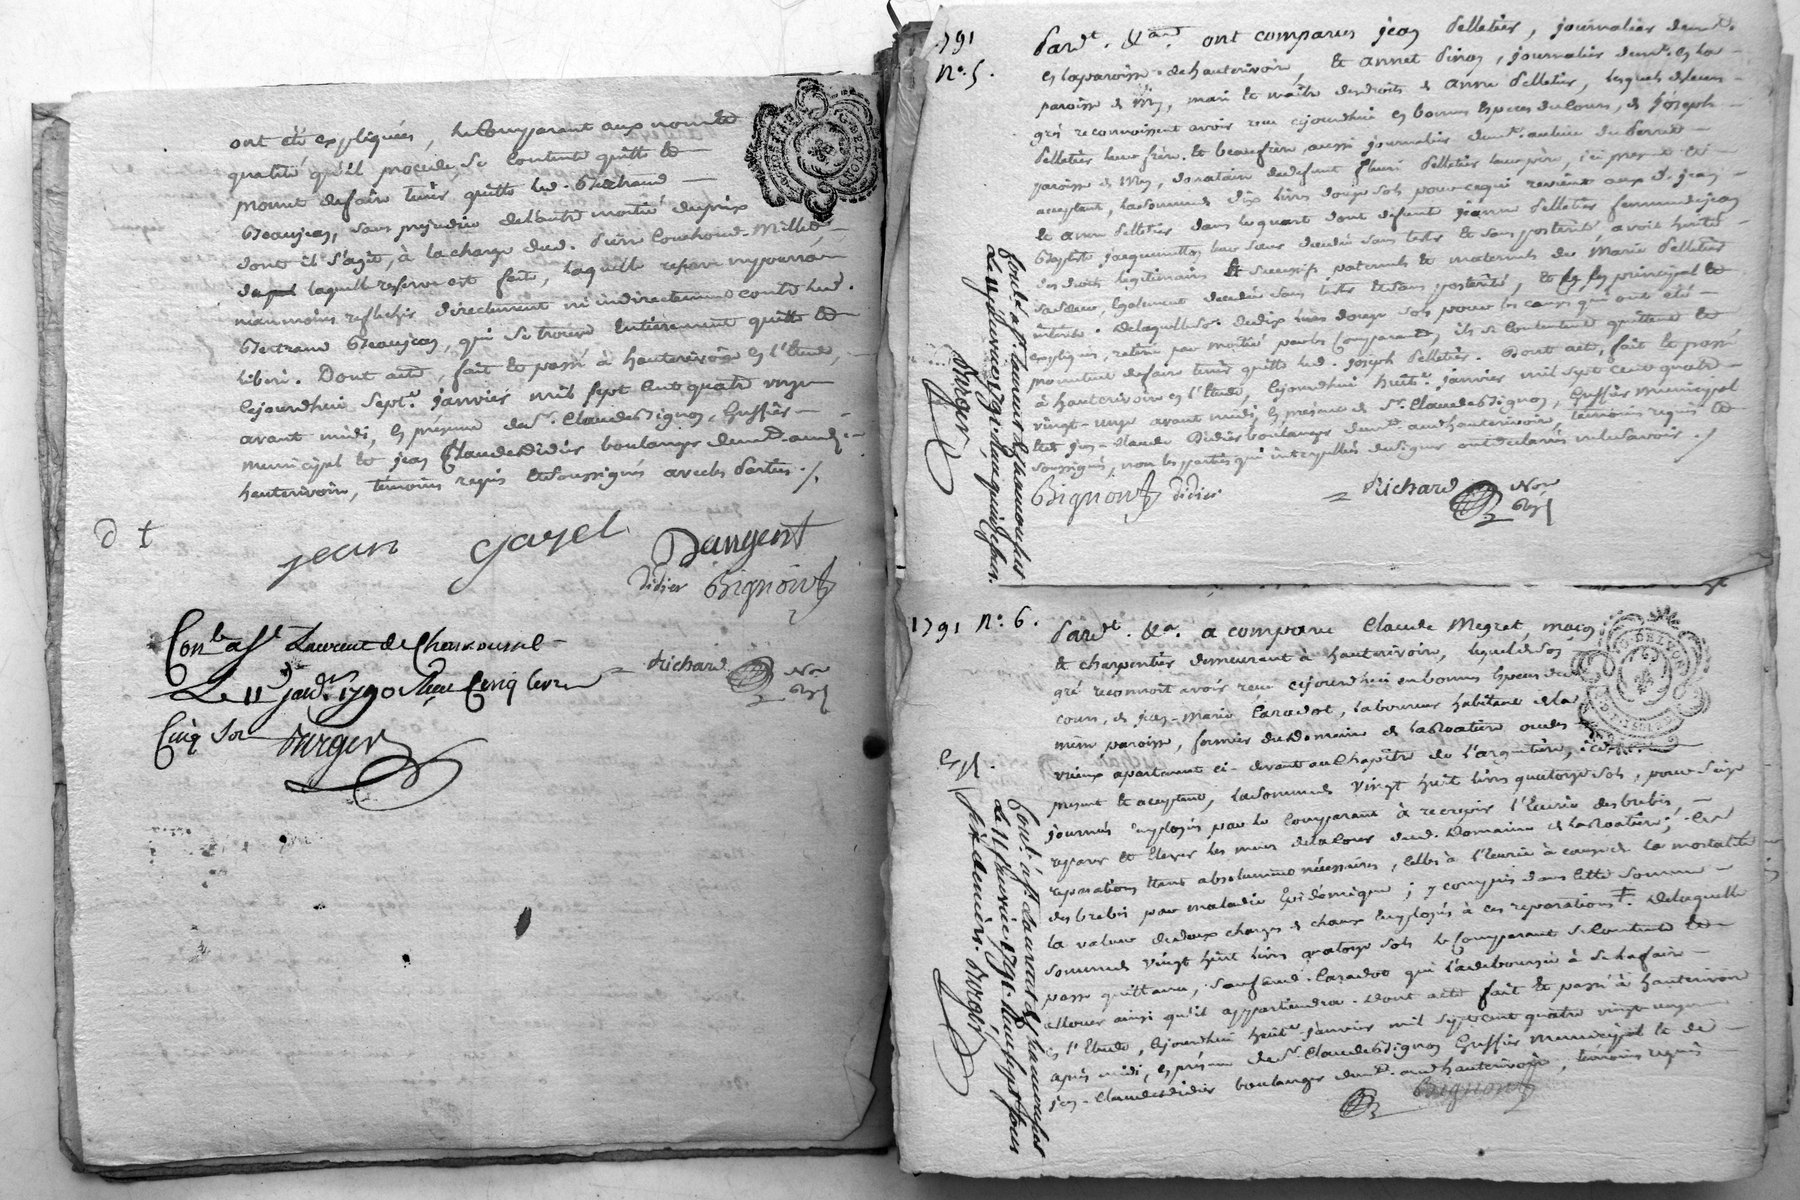 ont été expliquées, le Comparant aux noms et
qualité qu'il procede, se contente quitte et
promet de faire tenir quitte led. Bertrand
Beaujean, sans prejudice de l'autre moitié du prix
dont il s'agit, à la charge dud. Pierre Couchoud-Millet,
laquelle reserve est faite, laquelle reserve ne pourra
neanmoins reflechir directement ni indirectement contre led.
Bertrand Beaujean, qui se trouve entierement quitte et
liberé. Dont acte, fait et passé à hauterivoire en l'Etude,
cejourdhui sept.e janvier mil sept cent quatre vingt
avant midi, en presence de Sr. Claude Bignon, Greffier
municipal et jean Claude Didier boulanger demt. aud.
hauterivoire, temoins requis et soussignés avec les Parties ./.
jean gayel Dangent
Didier Bignon
Richard Nore
Con.lé à St Laurent de Chamousset
Le 11 janv.r 1790 Reçu Cinq livres
Cinq sols
Burger
1791
N.o 5.
Pardt. &a. ont comparus jean Pelletier, journalier demt.
en la paroisse de hauterivoire et annet Pinon, journalier demt. en la
paroisse de Mey, mari et maitre des droits de anne Pelletier, lesquels de leur
gré reconnoissent avoir reçu cejourdhui en bonnes especes du cours, de joseph
Pelletier leur frere et beaufrere, aussi journalier demt. au lieu du
paroisse de Mey, donataire de defunt fleuri Pelletier leur pere, ici present et
acceptant, la somme de dix livres douze sols pour ce qui revient aux d. jean
et anne Pelletier dans le quart dont defunte jeanne Pelletier femme de jean
Baptiste jacquemetton leur soeur decedée sans tester et sans posterité avoit herité
des droits legitimaires et successifs paternels et maternels de Marie Pelletier
sa soeur, egalement decedée sans tester et sans posterité, et ce en principal et
interets. De laquelle so. de dix livres douze sols pour les causes qui ont été
expliquées, retirée par moitié par les Comparants, ils se contentent quittent et
promettent de faire tenir quitte led. joseph Pelletier. Dont acte, fait et passé
à hauterivoire en l'Etude, cejourdhui huit.e janvier mil sept cent quatre
vingt-onze avant midi, en presence de Sr. Claude Bignon, Greffier municipal
et de jean-Claude Didier boulanger demt. aud. hauterivoire, temoins requis et
soussignés, non les parties qui interpellées de signer ont declaré ne le savoir ./.
Bignon Didier
Richard Nore
Conlé à St. Laurent de Chamousset
Le 11 janvier 1791. Reçu quinze sous.
Burger
1791 N.o 6.
Pardt. &a. a comparu Claude Megret, maçon
et charpentier demeurant à hauterivoire, lequel de son
gré reconnoit avoir reçu cejourdhui en bonnes especes du
cours, de jean-Marie Caradot, laboureur habitant de la
même paroisse, fermier du domaine de la Roatiere
vieux apartenant ci-devant au Chapitre de l'argentiere, ici
present et acceptant, la somme de vingt huit livres quatorze sols, pour seize
journées employées par le Comparant à recrepir l'Ecurie des brebis,
reparer et elever les murs de la cour dud. Domaine de la Roatiere; ces
reparations etant absolument nécessaires, celles à l'Ecurie à cause de la mortalité
des brebis par maladie Epidémique; y compris dans cette somme
la valeur de deux charges de chaux employées à ces reparations. De laquelle
somme de vingt huit livres quatorze sols le Comparant se contente et
passe quittance, sauf aud. Caradot qui l'a deboursée à se la faire
allouer ainsi qu'il appartiendra. Dont acte fait et passé à hauterivoire
en l'Etude, cejourdhui huit.e janvier mil sept cent quatre vingt-onze
après midi, en presence de Sr. Claude Bignon Greffier municipal et de
jean-Claude Didier boulanger demt. aud. hauterivoire, temoins requis
Bignon
Exp.
Conlé à St. Laurent de Chamousset
Le 11 janvier 1791. Reçu sept sous
six deniers. Burger